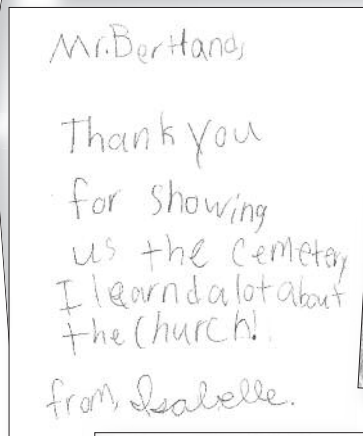 Mr. Bertrand,
Thank you
for showing
us the cemetery
I learnd a lot about
the church!
from, Isabelle.